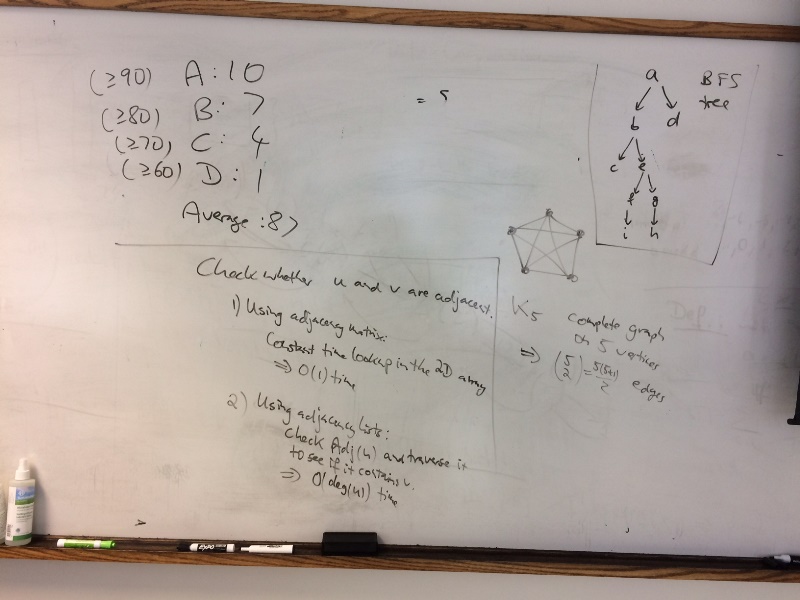 (≥90) A: 10
(≥80) B: 7
(≥70) C: 4
(≥60) D: 1
Average: 87
= 5
a
BFS
tree
b d
c e
f g
i h
Check whether u and v are adjacent.
1) Using adjacency matrix:
Constant time lookup in the 2D array
⇒ O(1) time
2) Using adjacency lists:
Check Adj(u) and traverse it
to see if it contains v.
⇒ O(deg(u)) time
K5 complete graph
on 5 vertices
⇒ (5 2) = 5(5-1)/2 edges
Def.
EXPO